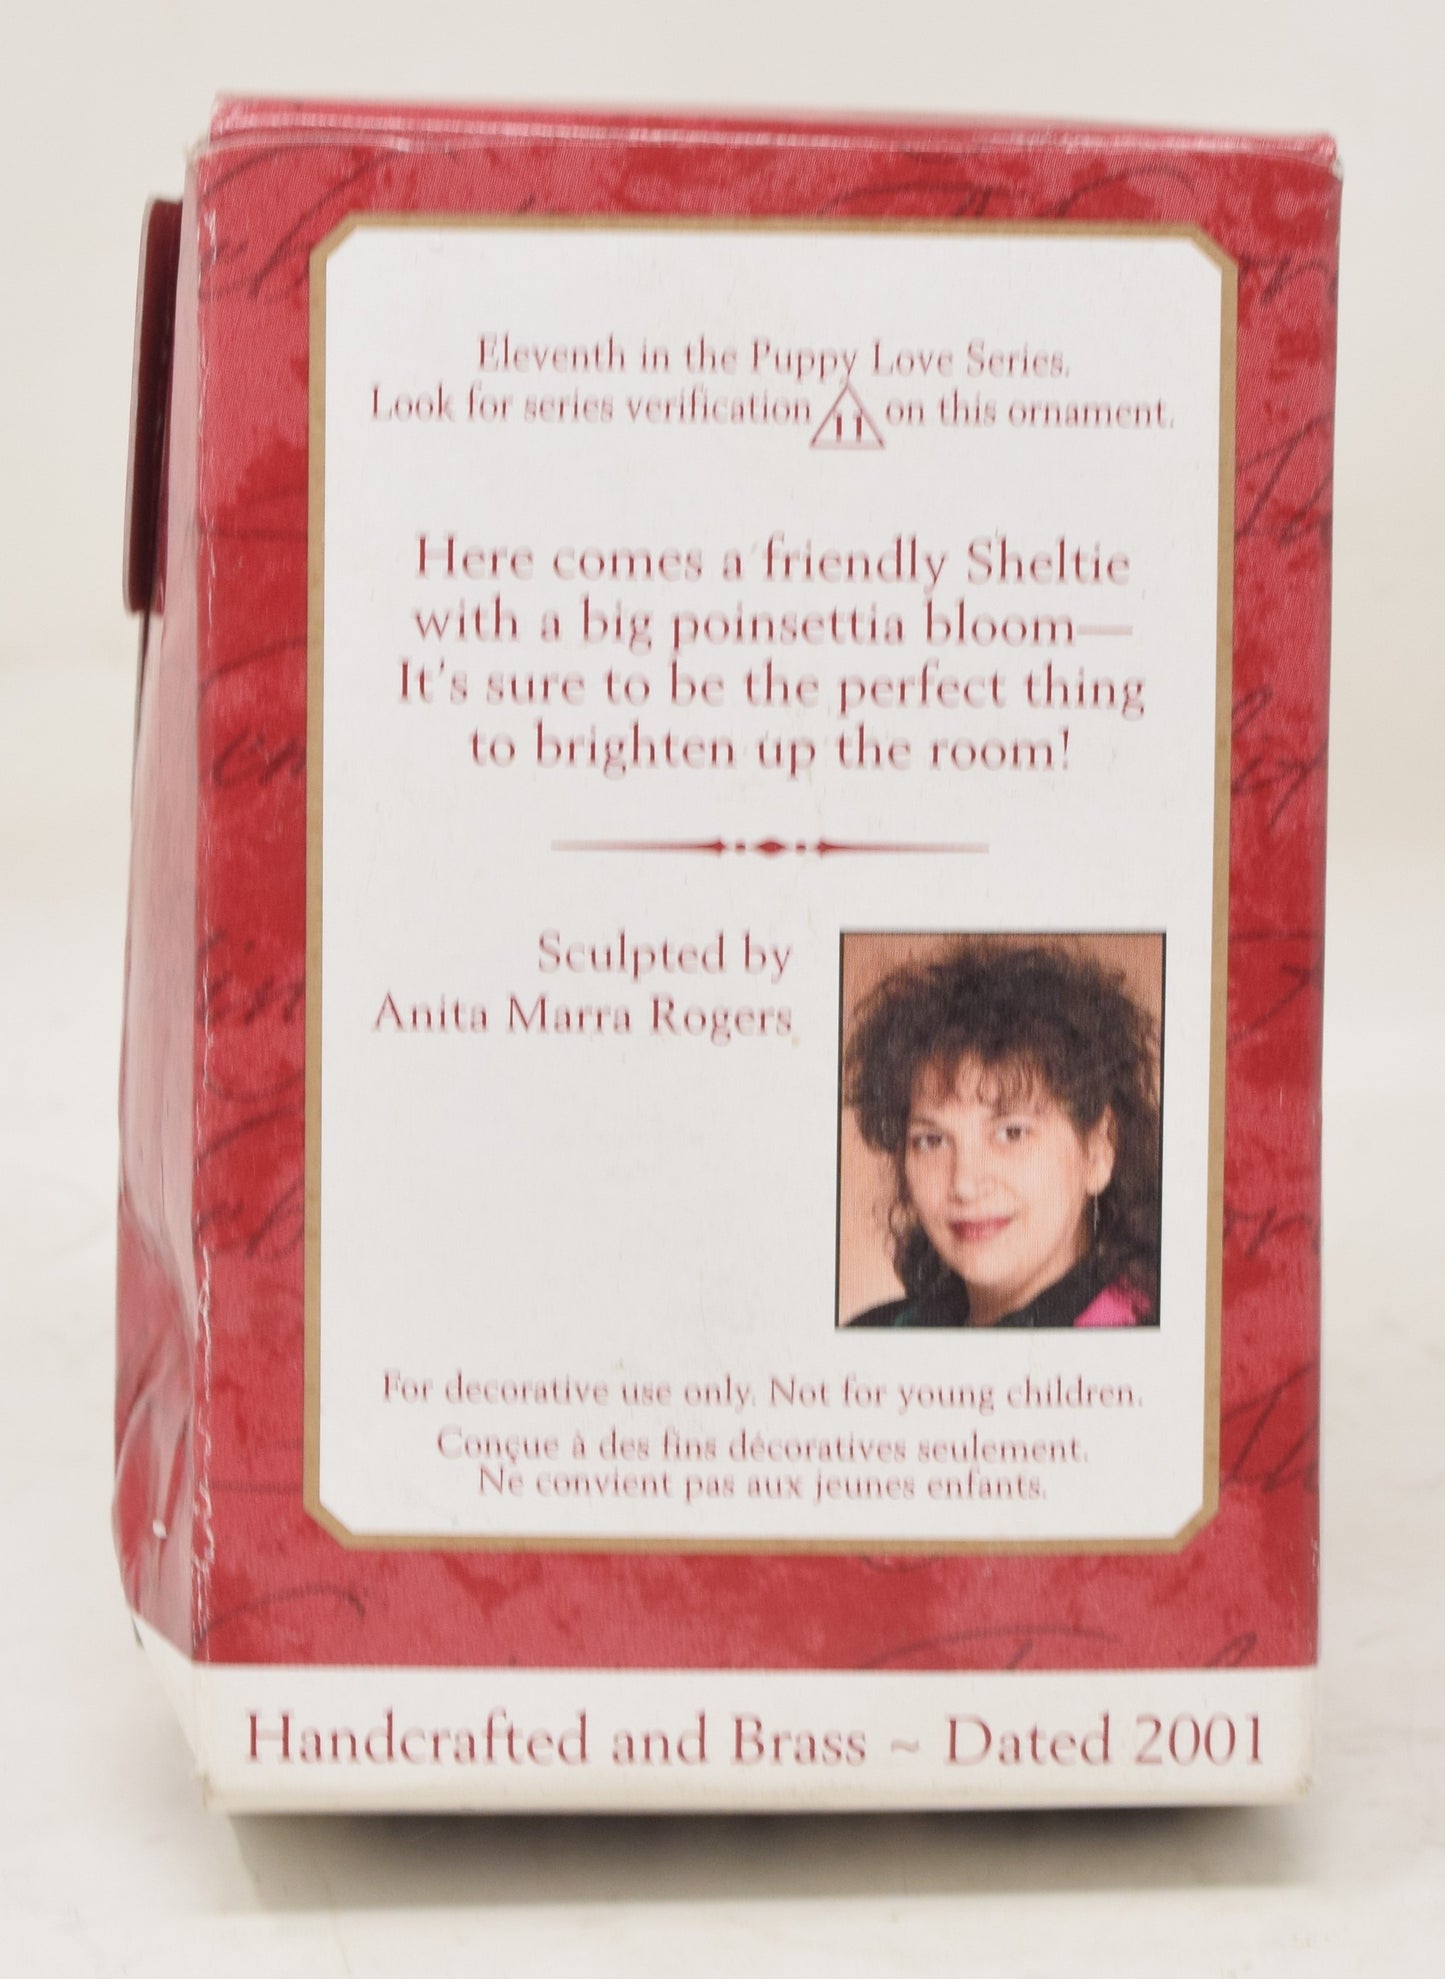 Eleventh in the Puppy Love Series.
Look for series verification 11 on this ornament.
Here comes a friendly Sheltie
with a big poinsettia bloom—
It's sure to be the perfect thing
to brighten up the room!
Sculpted by
Anita Marra Rogers
For decorative use only. Not for young children.
Conçue à des fins décoratives seulement.
Ne convient pas aux jeunes enfants.
Handcrafted and Brass ~ Dated 2001